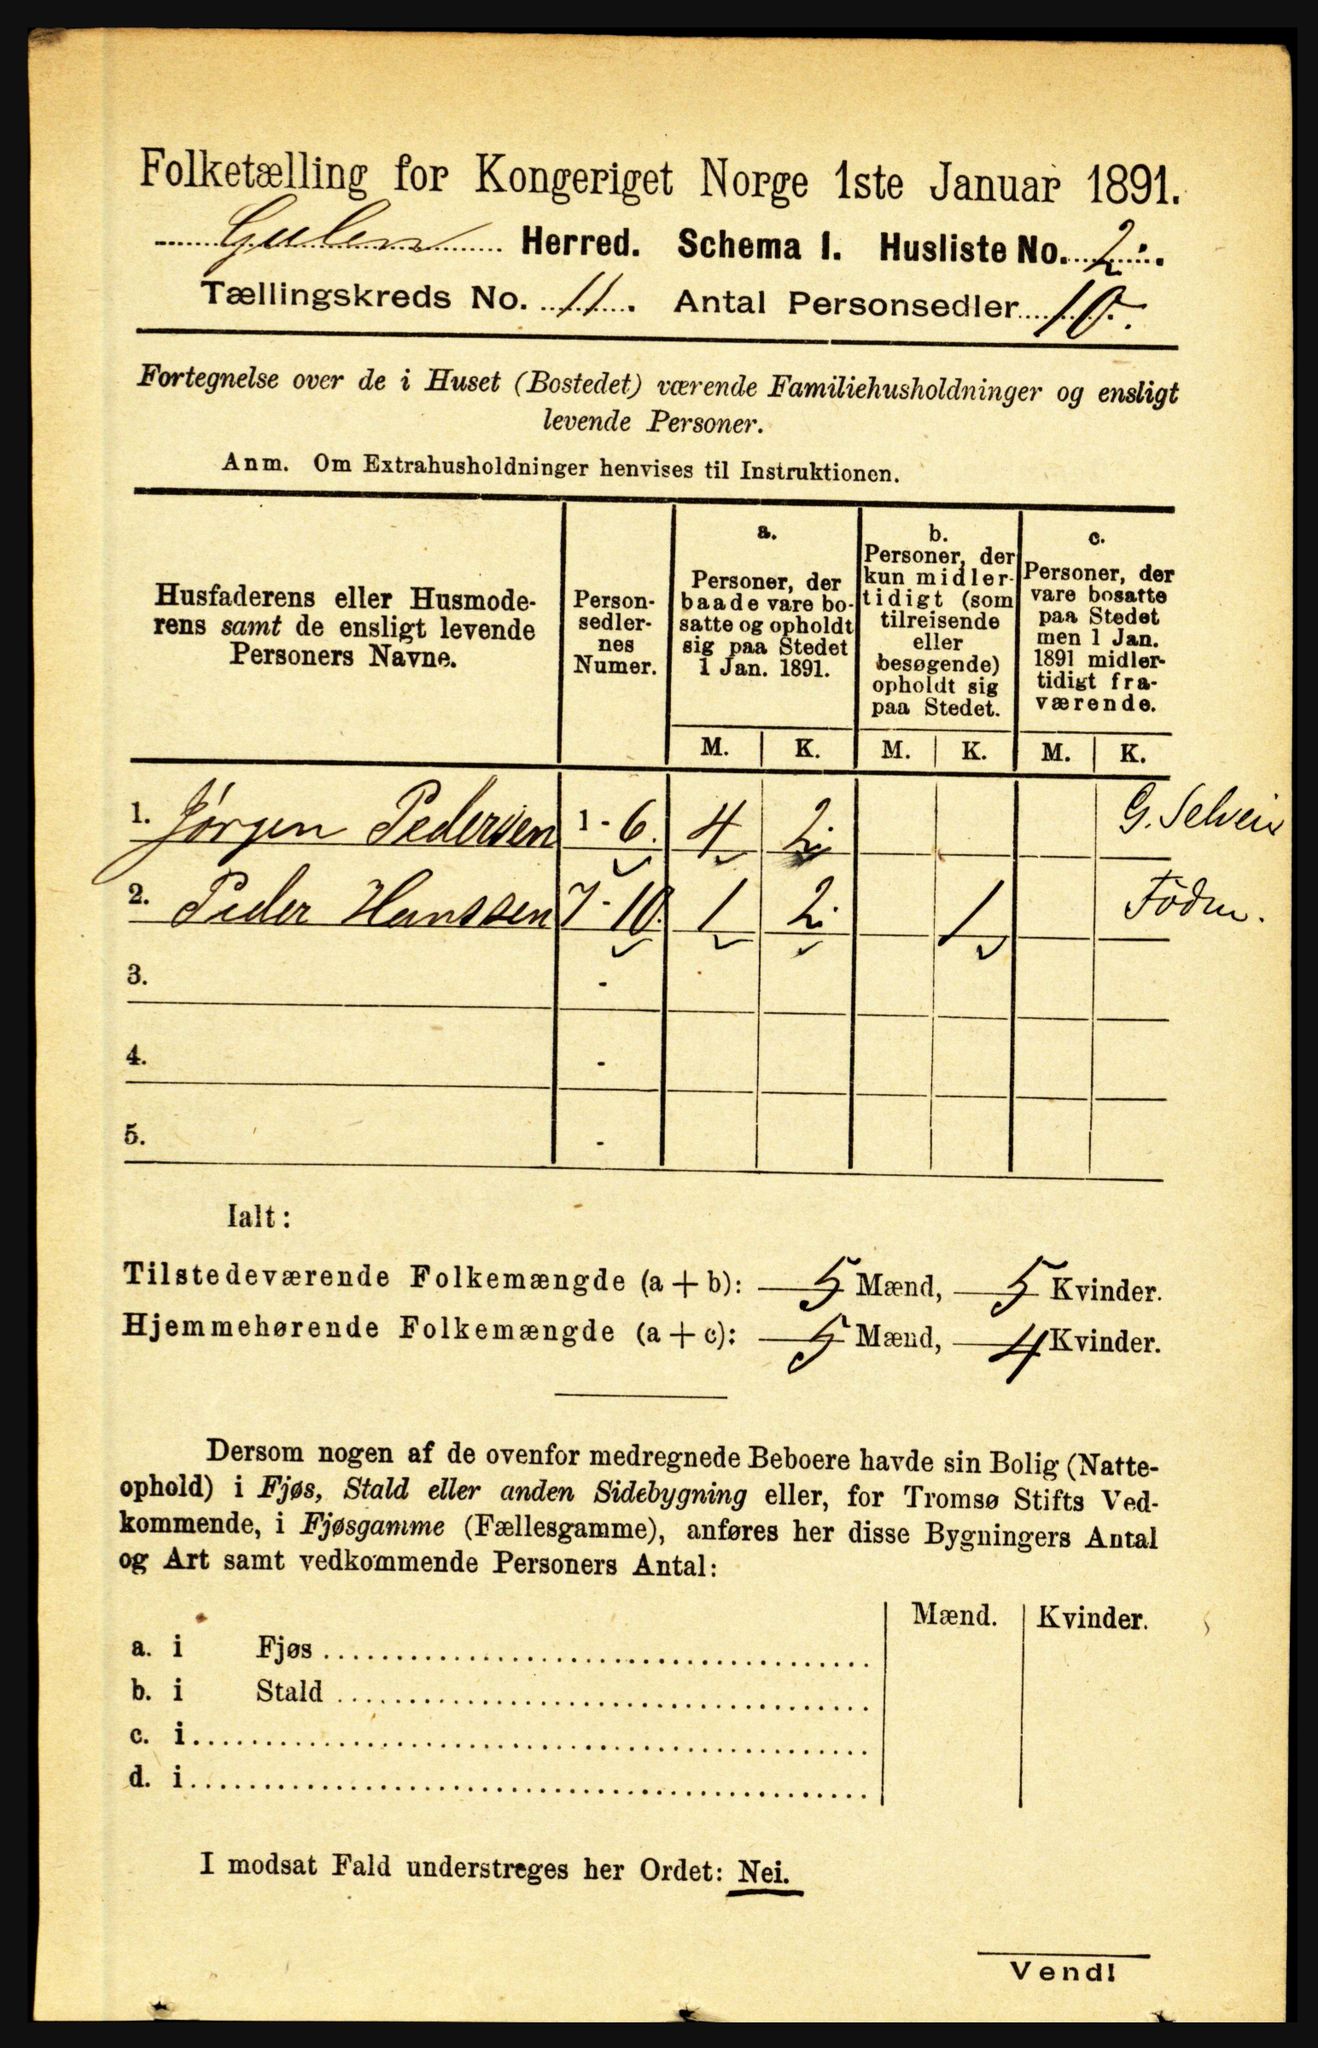 Folketælling for Kongeriget Norge 1ste Januar 1891.
Gulen Herred. Schema 1. Husliste No. 2.
Tællingskreds No. 11. Antal Personsedler 10.
Fortegnelse over de i Huset (Bostedet) værende Familiehusholdninger og ensligt
levende Personer.
Anm. Om Extrahusholdninger henvises til Instruktionen.
Husfaderens eller Husmode-
rens samt de ensligt levende
Personers Navne.
Person-
sedler-
nes
Numer.
a.
Personer, der
baade vare bo-
satte og opholdt
sig paa Stedet
1 Jan. 1891.
b.
Personer, der
kun midler-
tidigt (som
tilreisende
eller
besøgende)
opholdt sig
paa Stedet.
c.
Personer, der
vare bosatte
paa Stedet
men 1 Jan.
1891 midler-
tidigt fra-
værende.
M. K. M. K. M. K.
1. Jørgen Pedersen 1-6. 4 2. G.
2. Peder Hanssen 7-10. 1 2. 1
3. -
4. -
5. -
Ialt:
Tilstedeværende Folkemængde (a + b): 5 Mænd, 5 Kvinder.
Hjemmehørende Folkemængde (a + c): 5 Mænd, 4 Kvinder.
Dersom nogen af de ovenfor medregnede Beboere havde sin Bolig (Natte-
ophold) i Fjøs, Stald eller anden Sidebygning eller, for Tromsø Stifts Ved-
kommende, i Fjøsgamme (Fællesgamme), anføres her disse Bygningers Antal
og Art samt vedkommende Personers Antal:
Mænd. Kvinder.
a. i Fjøs
b. i Stald
c. i
d. i
I modsat Fald understreges her Ordet: Nei.
Vend!